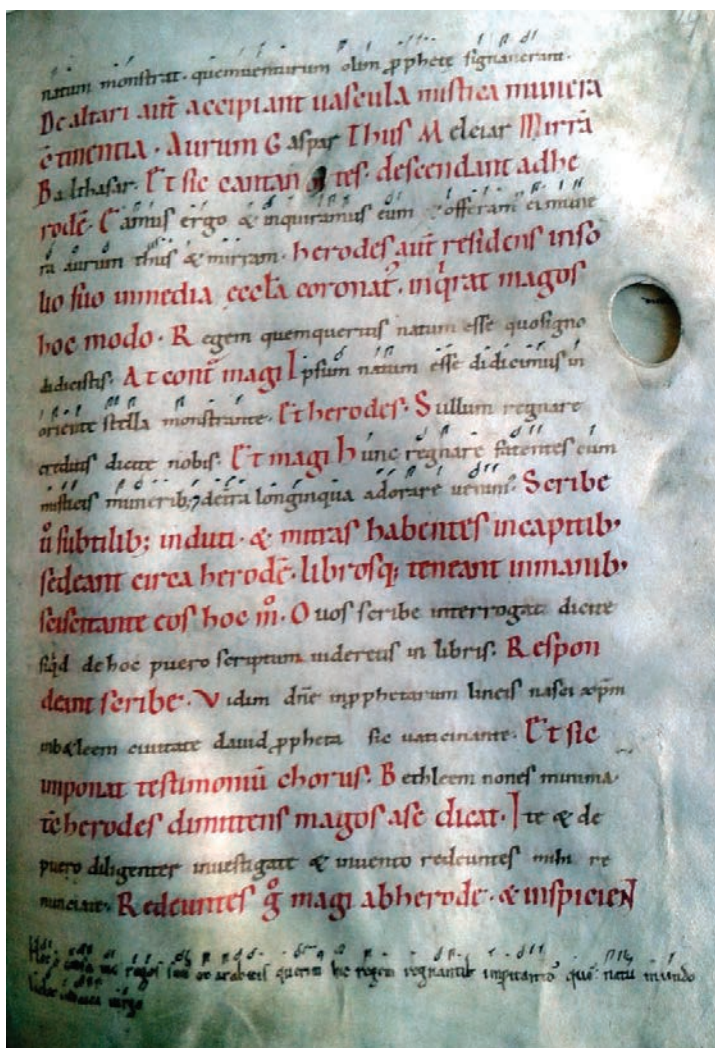 natum monstrat. quemuenturum olim ꝓphete signauerant.
De altari aut̄ accipiant uascula mistica munera
ↄ̄tinentia. Aurum Gaspar Thus Melciar Mirrā
Balthasar. Et sic cantantes. descendant adhe
rodē. Eamus ergo & inquiramus eum & offeram̄ ei mune
ra aurum thus & mirram. herodes aut̄ residens inso
lio suo inmedia eccl̄a coronat᷒. inqͥrat magos
hoc modo. Regem quemqueritis natum esse quosigno
didicistis. At cont͛ magi Ipsum natum esse didicimus in
oriente stella monstrante. Et herodes. Sullum regnare
creditis dicite nobis. Et magi hunc regnare fatentes cum
misticis munerib; de tr̄a longinqua adorare uenim᷒. Scribe
ů subtilib; induti. & mitras habentes incapitib;
sedeant circa herodē. librosq; teneant inmanib;
sciscitante eos hoc m̊. O uos scribe interrogati dicite
siqͥd dehoc puero scriptum uideretis in libris. Respon
deant scribe. Vidim᷒ dn̄e inꝓphetarum lineis nasci xp̄m
inbethleem ciuitate dauid ꝓpheta sic uaticinante. Et sic
imponat testimoniū chorus. Bethleem nones minima.
tc̄ herodes dimittens magos ase dicat. Ite & de
puero diligenter inuestigate & inuento redeuntes mihi re
nunciate. Redeuntes g̊ magi abherode. & inspicien
regnantib᷒ natū mundo
uirgo